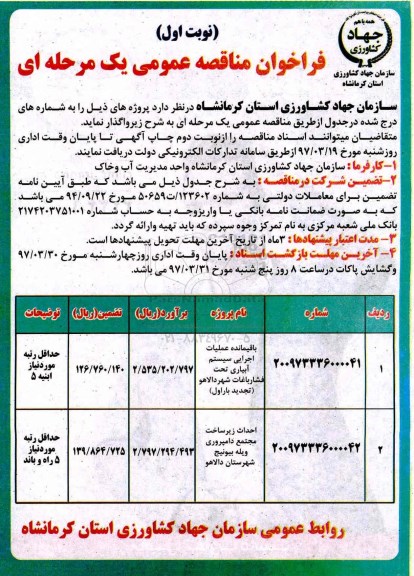 همه با هم
جهاد
کشاورزی
سازمان جهاد کشاورزی
استان کرمانشاه
(نوبت اول)
فراخوان مناقصه عمومی یک مرحله ای
سازمان جهاد کشاورزی استان کرمانشاه درنظر دارد پروژه های ذیل را به شماره های
درج شده درجدول ازطریق مناقصه عمومی یک مرحله ای به شرح زیرواگذار نماید.
متقاضیان میتوانند اسناد مناقصه را ازنوبت دوم چاپ آگهی تا پایان وقت اداری
روزشنبه مورخ ۹۷/۰۳/۱۹ ازطریق سامانه تدارکات الکترونیکی دولت دریافت نمایند.
۱-کارفرما : سازمان جهاد کشاورزی استان کرمانشاه واحد مدیریت آب وخاک
۲-تضمین شرکت درمناقصه : به شرح جدول ذیل می باشد که طبق آیین نامه
تضمین برای معاملات دولتی به شماره ۱۲۳۶۰۲/ت۵۰۶۵۹ مورخ ۹۴/۰۹/۲۲ می باشد
که به صورت ضمانت نامه بانکی یا واریزوجه به حساب شماره ۲۱۷۴۲۰۳۷۵۱۰۰۱
بانک ملی شعبه مرکزی به نام تمرکز وجوه سپرده که باید تهیه وارائه گردد.
۳- مدت اعتبار پیشنهادها : ۳ماه از تاریخ آخرین مهلت تحویل پیشنهادها است.
۴- آخرین مهلت بازگشت اسناد : پایان وقت اداری روزچهارشنبه مورخ ۹۷/۰۳/۳۰
وگشایش پاکات درساعت ۸ روز پنج شنبه مورخ ۹۷/۰۳/۳۱ می باشد.
ردیف شماره نام پروژه برآورد(ریال) تضمین(ریال) توضیحات
۱ ۲۰۰۹۷۳۳۳۶۰۰۰۰۴۱ باقیمانده عملیات اجرایی سیستم آبیاری تحت فشارباغات شهردالاهو (تجدید باراول) ۲/۵۳۵/۲۰۲/۷۹۷ ۱۲۶/۷۶۰/۱۴۰ حداقل رتبه موردنیاز ابنیه ۵
۲ ۲۰۰۹۷۳۳۳۶۰۰۰۰۴۲ احداث زیرساخت مجتمع دامپروری ویله بیونیج شهرستان دالاهو ۲/۷۹۷/۲۹۴/۴۹۳ ۱۳۹/۸۶۴/۷۲۵ حداقل رتبه موردنیاز ۵ راه و باند
روابط عمومی سازمان جهاد کشاورزی استان کرمانشاه